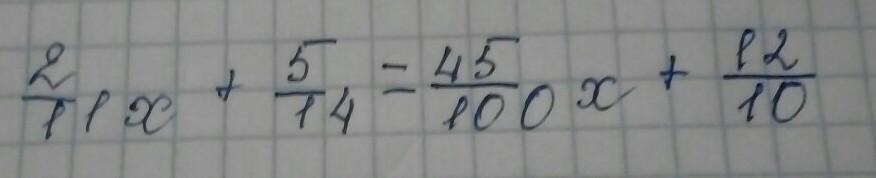 2/11 x + 5/14 = 45/100 x + 12/10